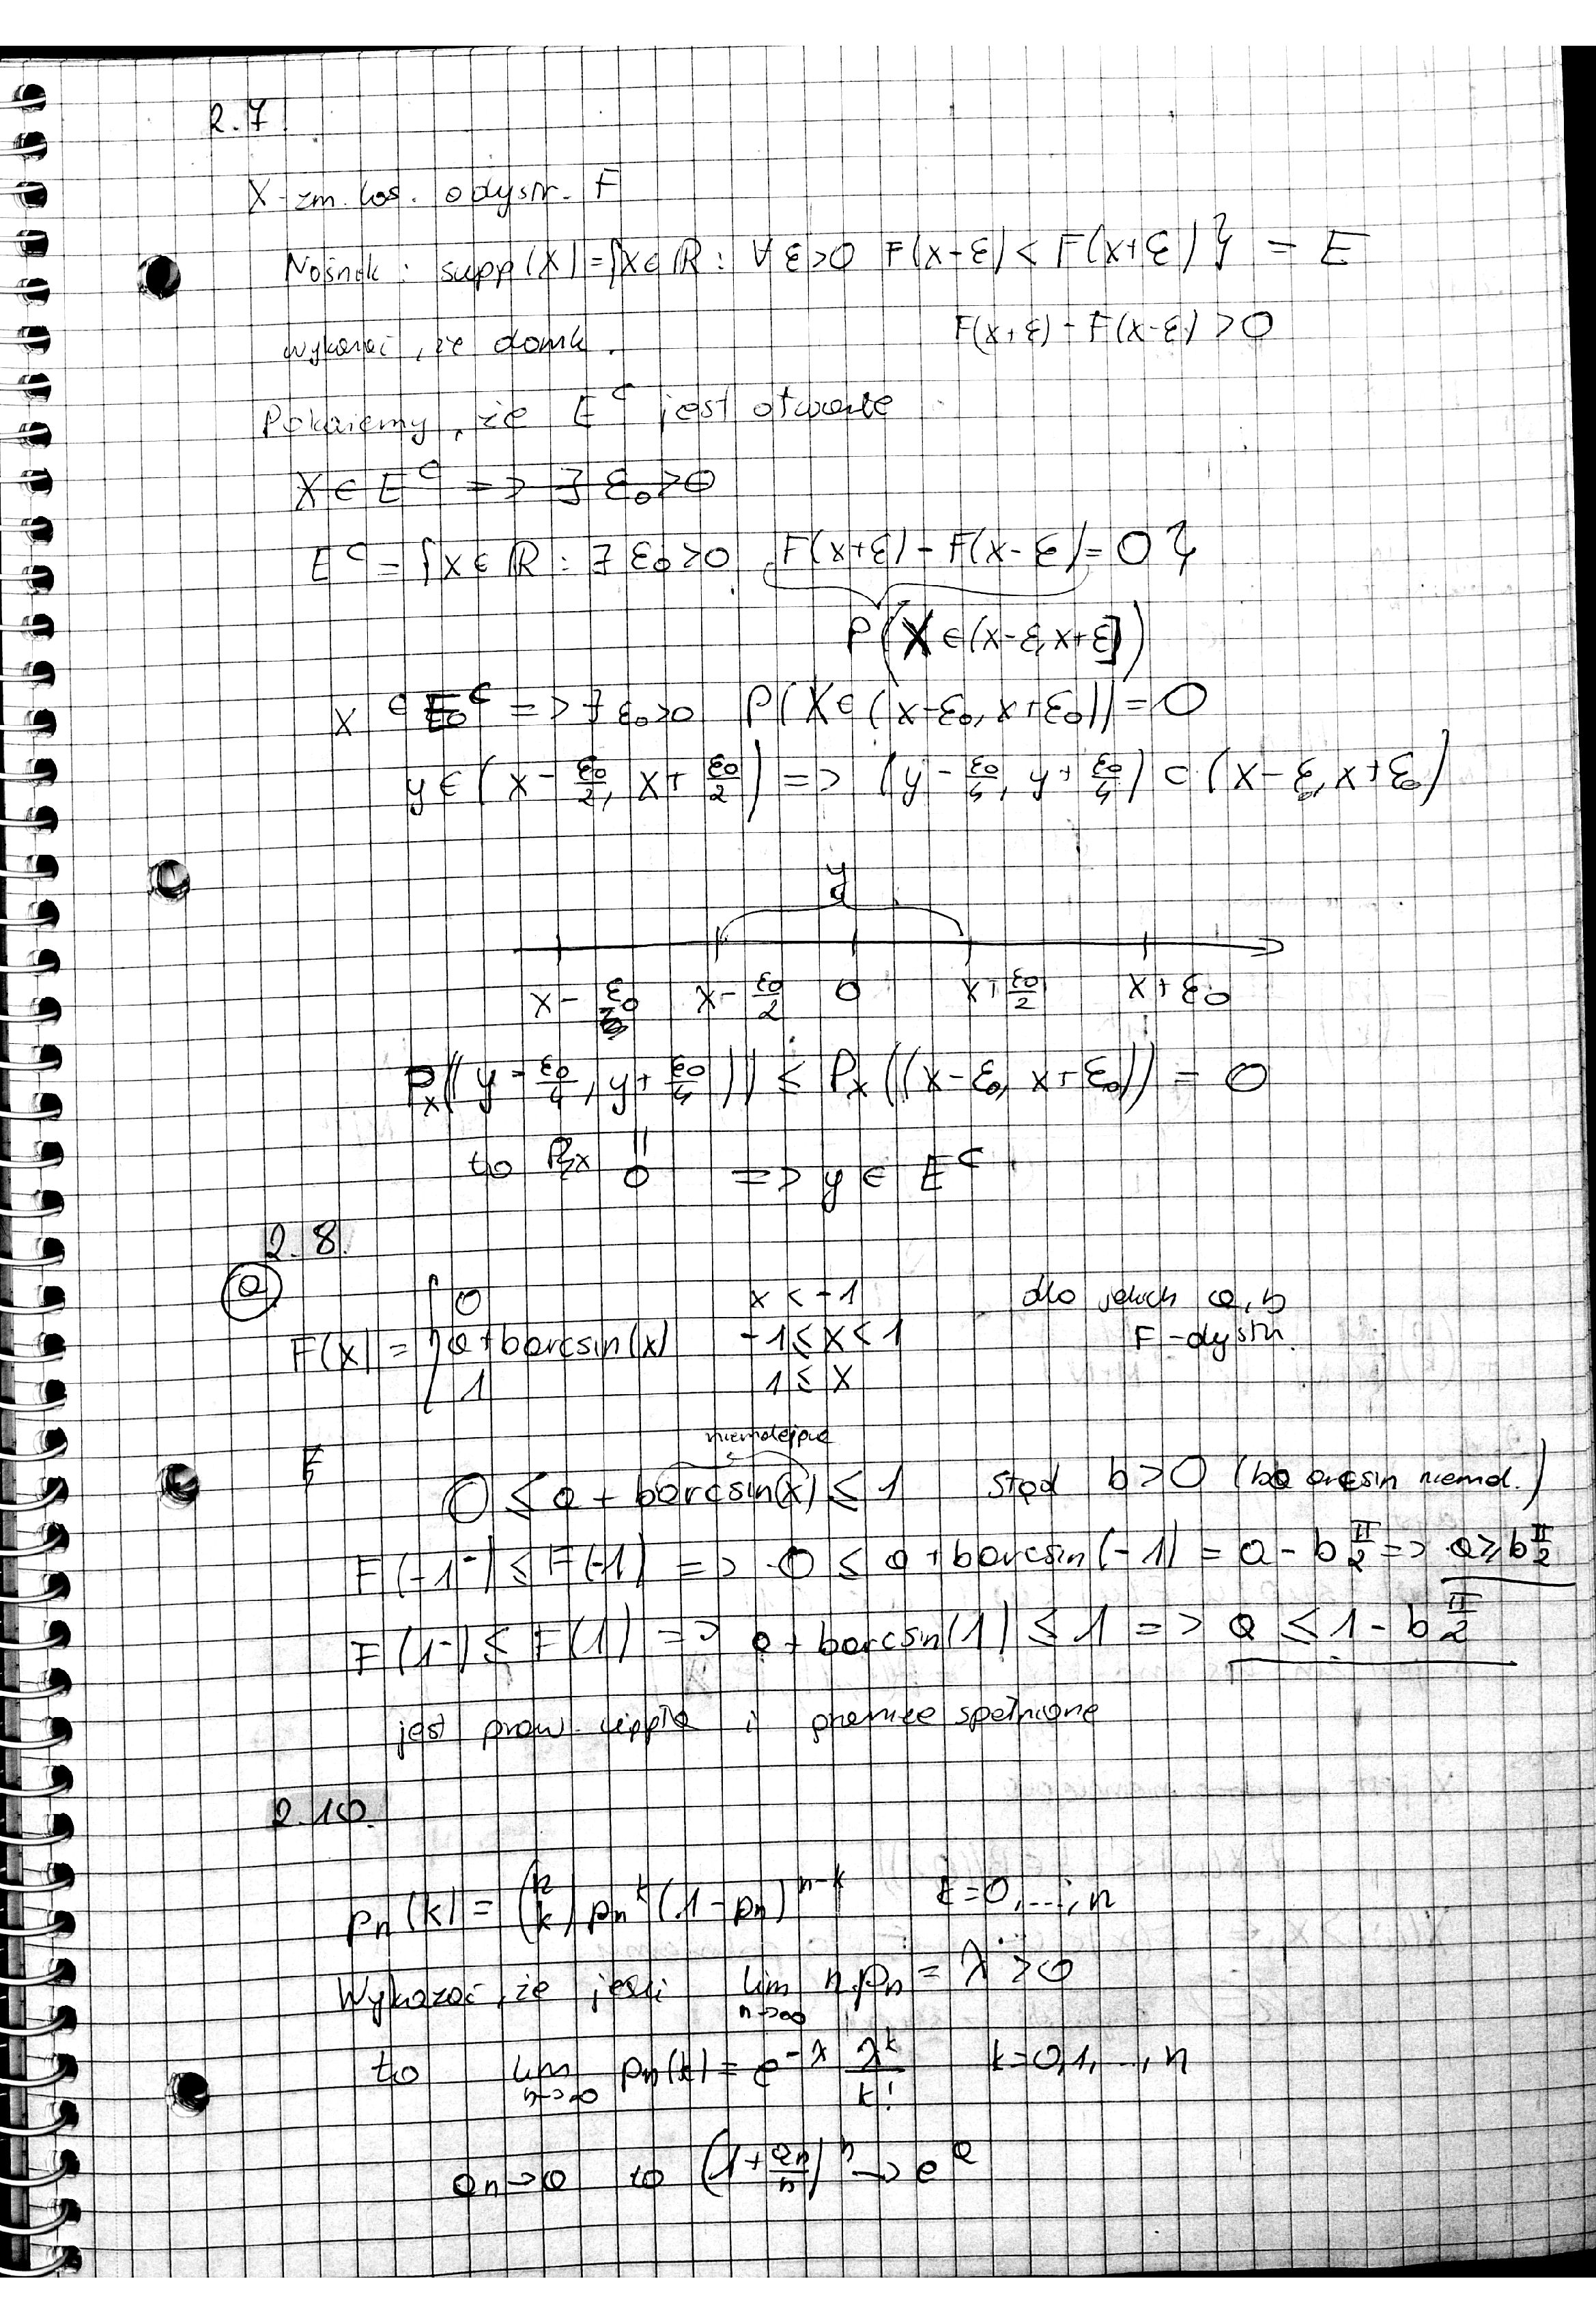 2.7.
X - zm. los. o dystr. F
Nośnik: supp(X) = {x ∈ ℝ : ∀ ε>0 F(x-ε) < F(x+ε)} = E
wykazać, że domk. F(x+ε) - F(x-ε) > 0
Pokażemy, że E^c jest otwarte
X ∈ E^c => ∃ ε₀>0
E^c = {x ∈ ℝ : ∃ ε₀>0 F(x+ε) - F(x-ε) = 0}
P(X ∈ (x-ε, x+ε])
x ∈ E^c => ∃ ε₀>0 P(X ∈ (x-ε₀, x+ε₀)) = 0
y ∈ (x - ε₀/2, x + ε₀/2) => (y - ε₀/4, y + ε₀/4) ⊂ (x-ε₀, x+ε₀)
y
x - ε₀ x - ε₀/2 0 x + ε₀/2 x + ε₀
P_X((y - ε₀/4, y + ε₀/4)) ≤ P_X((x-ε₀, x+ε₀)) = 0
to = 0 => y ∈ E^c
2.8.
(a)
F(x) = { 0 x < -1
a + b arcsin(x) -1 ≤ x < 1
1 1 ≤ x
dla jakich a, b
F - dystr.
niemalejąca
0 ≤ a + b arcsin(x) ≤ 1 stąd b > 0 (bo arcsin niemal.)
F(-1⁻) ≤ F(-1) => 0 ≤ a + b arcsin(-1) = a - b π/2 => a ≥ b π/2
F(1⁻) ≤ F(1) => a + b arcsin(1) ≤ 1 => a ≤ 1 - b π/2
jest praw. ciągła i granice spełnione
2.10.
pₙ(k) = (n k) pₙ^k (1-pₙ)^(n-k) k = 0, ..., n
Wykazać, że jeśli lim n→∞ n·pₙ = λ > 0
to lim n→∞ pₙ(k) = e^(-λ) λ^k/k! k = 0, 1, ..., n
aₙ → a to (1 + aₙ/n)^n → e^a